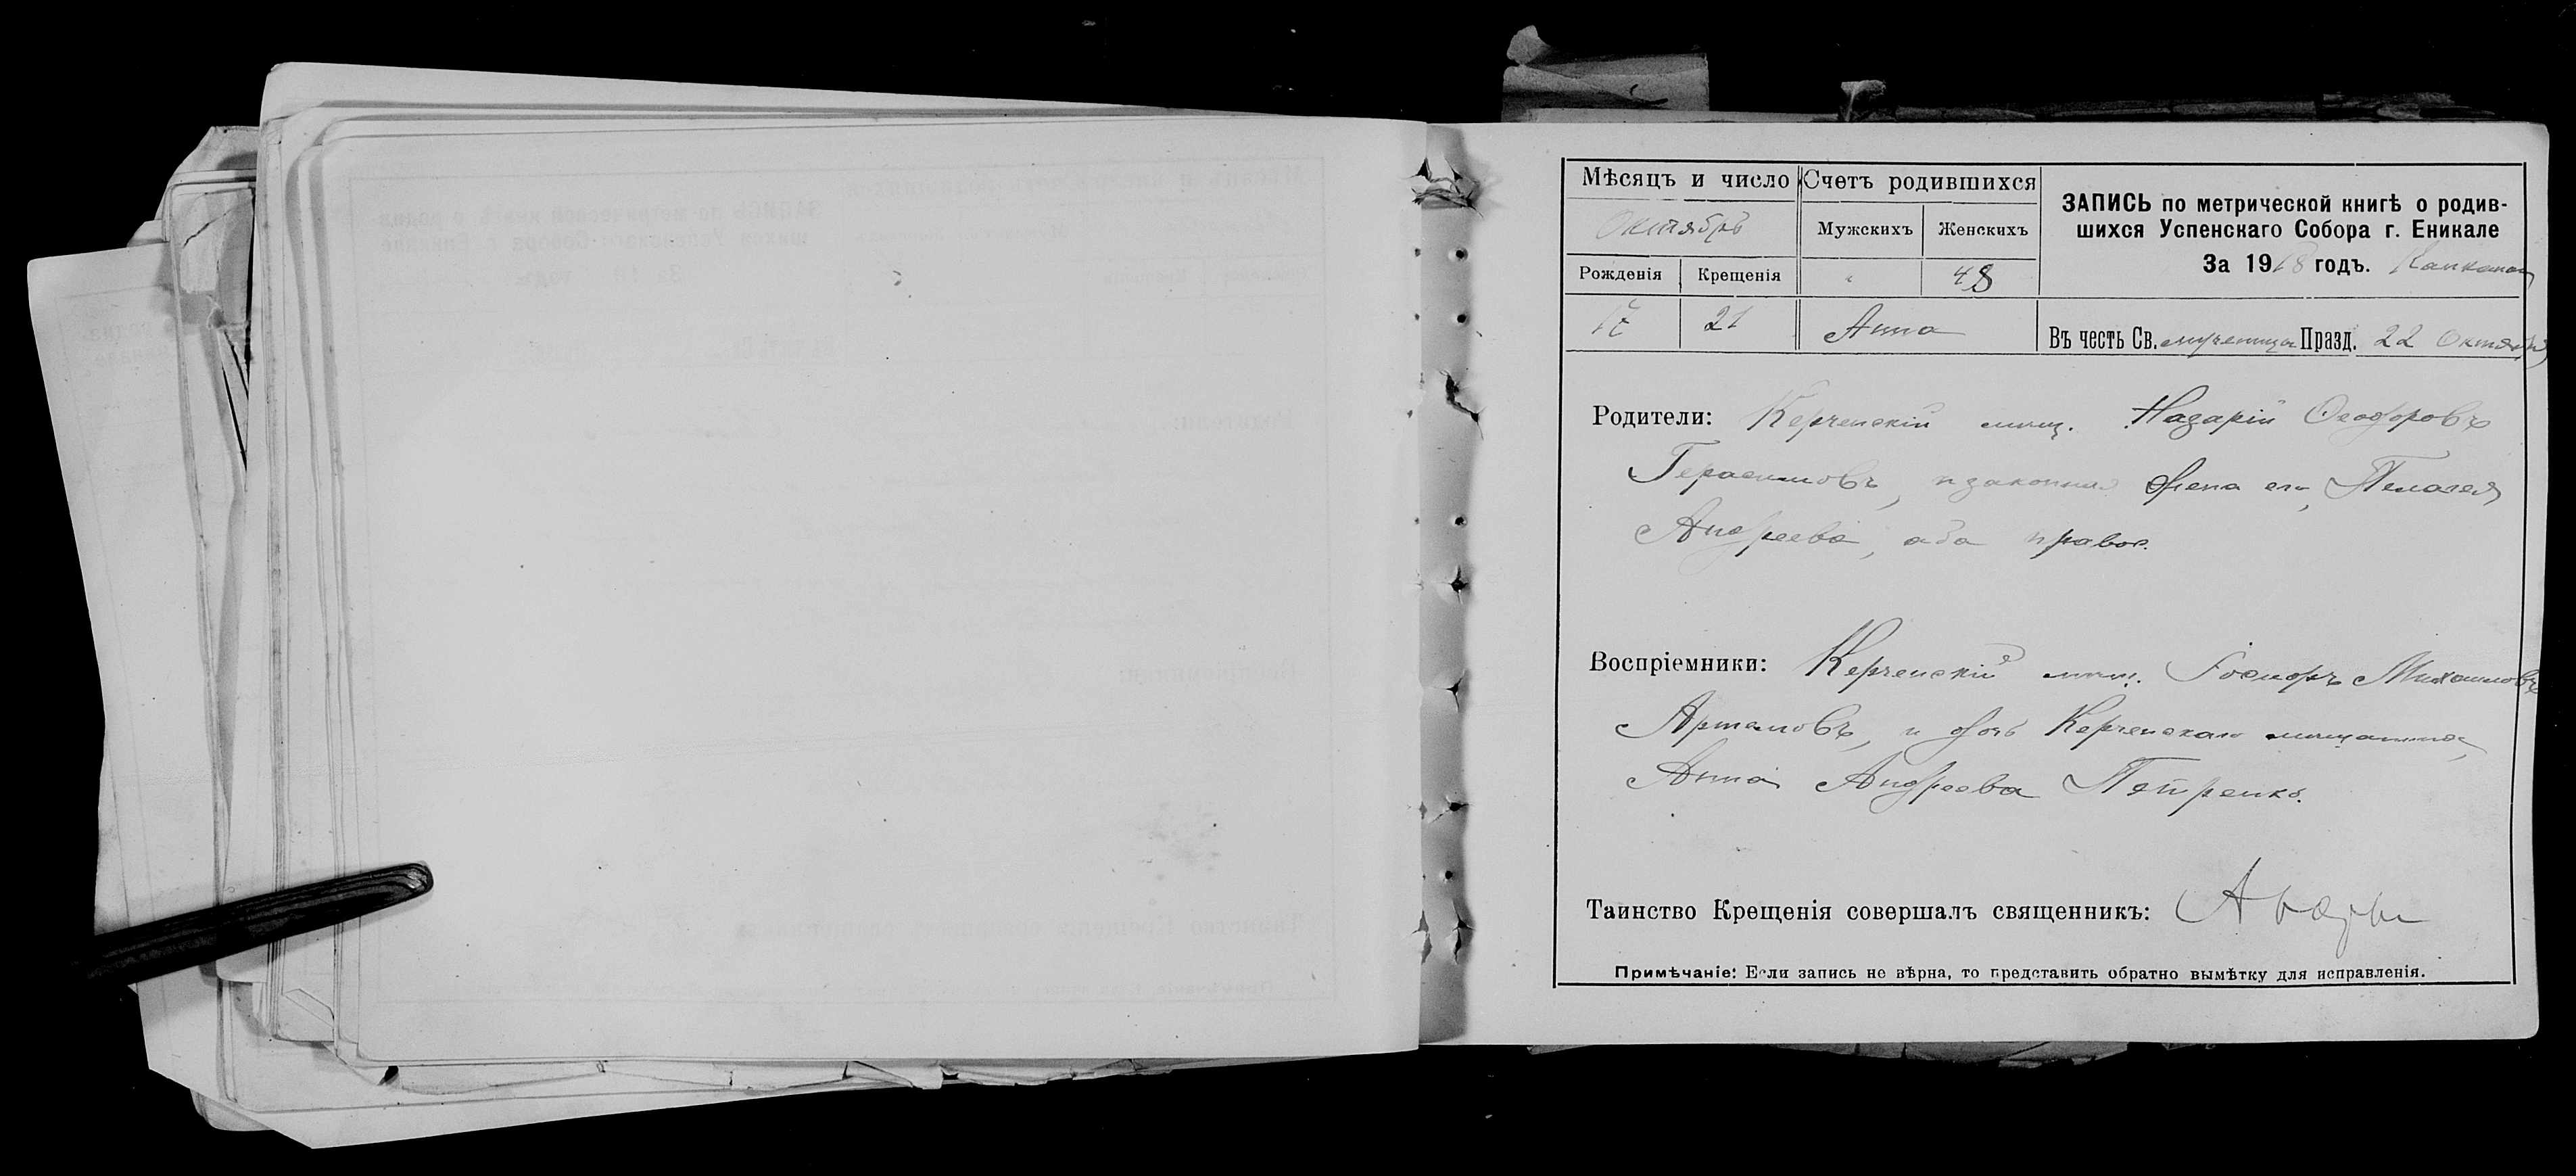 Мѣсяцъ и число
Октябрь
Рожденія Крещенія
17 21
Счетъ родившихся
Мужскихъ Женскихъ
" 48
Анна
ЗАПИСЬ по метрической книгѣ о родив-
шихся Успенскаго Собора г. Еникале
За 1918 годъ.
Въ честь Св. мученицы Празд. 22 Октября
Родители: Керченскій мѣщ. Назарій Ѳеодоровъ
Герасимовъ, и законная жена его, Пелагея
Андреева, оба правос.
Воспріемники: Керченскій мѣщ. Михаиловъ
Артемовъ, и дочь Керченскаго мѣщанина,
Анна Андреева Петренко.
Таинство Крещенія совершалъ священникъ:
Примѣчаніе: Если запись не вѣрна, то представить обратно вымѣтку для исправленія.